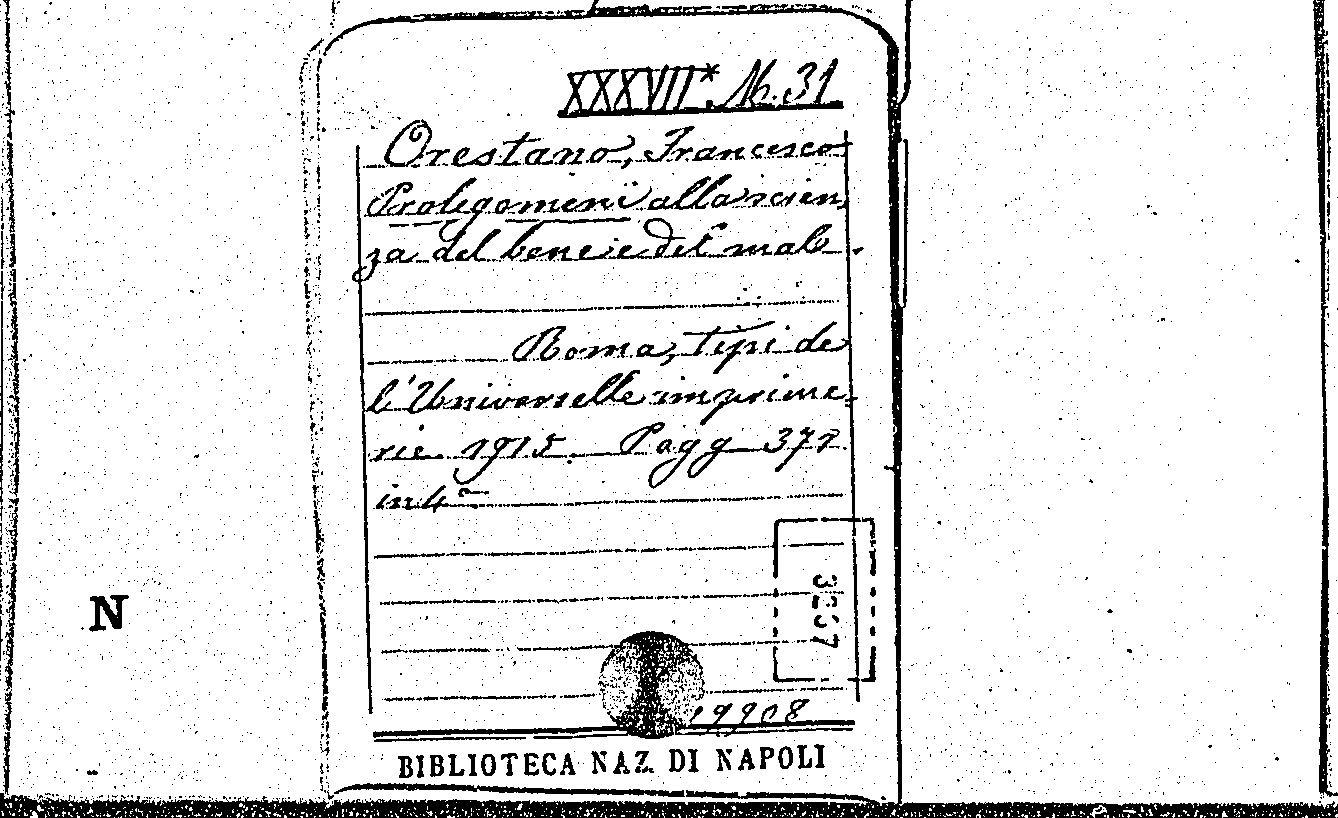 XXXVII* M. 31
Orestano, Francesco
Prolegomeni alla scien,
za del bene e del male.
Roma, tipi de
l'Universelle imprime,
rie 1915. Pagg 372
in 4°
3237
N
19908
BIBLIOTECA NAZ. DI NAPOLI